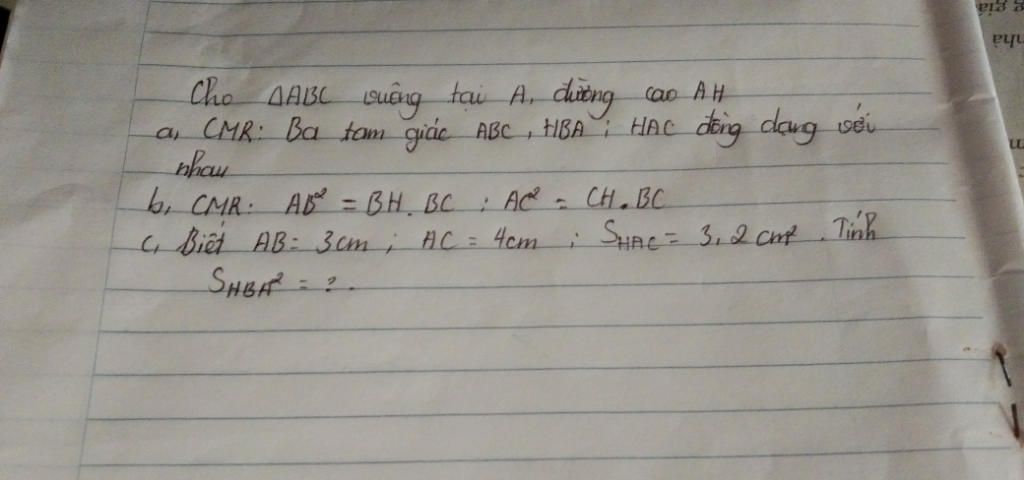 Cho ΔABC vuông tại A, đường cao AH
a, CMR: Ba tam giác ABC, HBA ; HAC đồng dạng với
nhau
b, CMR: AB² = BH. BC ; AC² = CH. BC
c, Biết AB= 3cm ; AC = 4cm ; S_HAC = 3,2 cm². Tính
S_HBA² = ?.
nhà